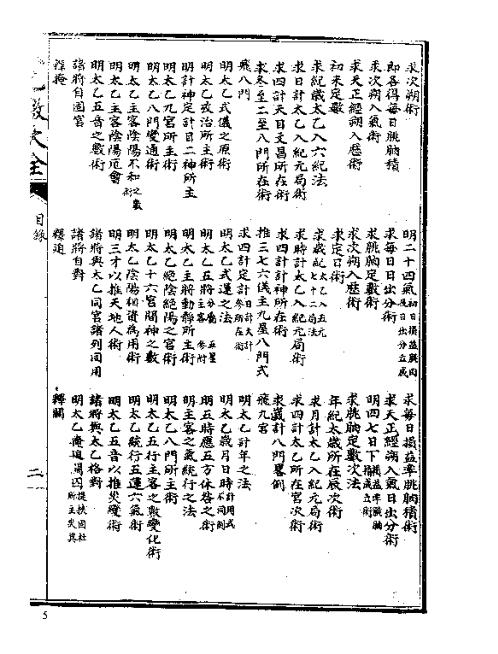 求次朔術　明二十四氣初日損益興因後日出分立成　求每日損益率朓朒積術
即各得每日朓朒積　求每日日出分術　求天正經朔入氣日出分術
求次朔入氣術　求朓朒定數術　明四七日下損益率朓朒積立成術
求天正經朔入歷術　求次朔入歷術　求朓朒定數次法
初末定數　求定日術　年紀太歲所在辰次術
求紀歲太乙入六紀法　求歲紀太乙入五元七十二局法　求月計太乙入紀元局術
求日計太乙入紀元局術　求時計太乙入紀元局術　求四計太乙所在宮次術
求四計天目文昌所在術　求四計計神所在術　求歲計八門畧例
求冬至二至八門所在術　推三七六儀主九星八門式　飛九宮
飛八門　求四計定計所在術　明太乙計年之法
明太乙式儀之原術　明太乙式運之法　明太乙歲月日時計用式不同例
明太乙攻治所主術　明太乙五將主客分屬五星參附　明五時應五方休咎之術
明計神定計目二神所主　明太乙主將動靜所主術　明主客之氣統行之法
明太乙九宮所主術　明太乙絶陰絶陽之宮術　明太乙八門所主術
明太乙八門變通術　明太乙十六宮間神之數　明太乙五行主客之數變化術
明太乙主客陰陽不和之數術　明太乙陰陽相資為用術　明太乙統行五運六氣術
明太乙主客陰陽厄會　明三才以推天地人術　明太乙五音以推災變術
明太乙五音之數術　諸將與太乙同宮諸列同用　諸將與太乙格對
諸將自囚宮　諸將自對　明太乙掩迫關囚提挾囚杜所主災異
釋掩　釋迫　釋關
目錄
二
5